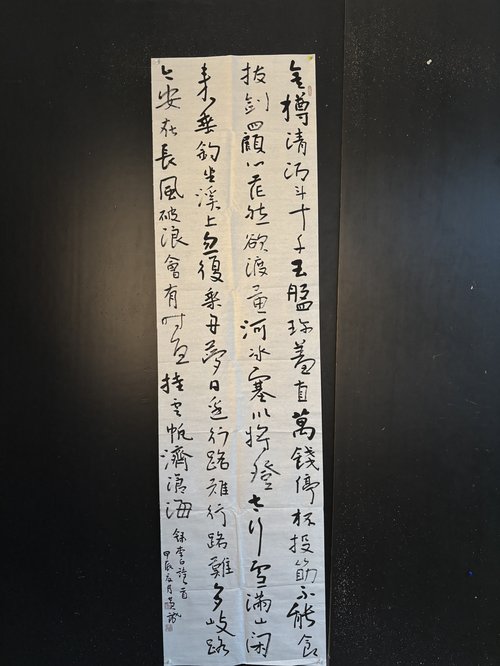 金樽清酒斗十千玉盤珍羞直萬錢停杯投筯不能食
拔劍四顧心茫然欲渡黃河冰塞川將登太行雪滿山閑
來垂釣坐溪上忽復乘舟夢日邊行路難行路難多岐路
今安在長風破浪會有時直挂雲帆濟滄海
錄李白詩一首
甲辰月